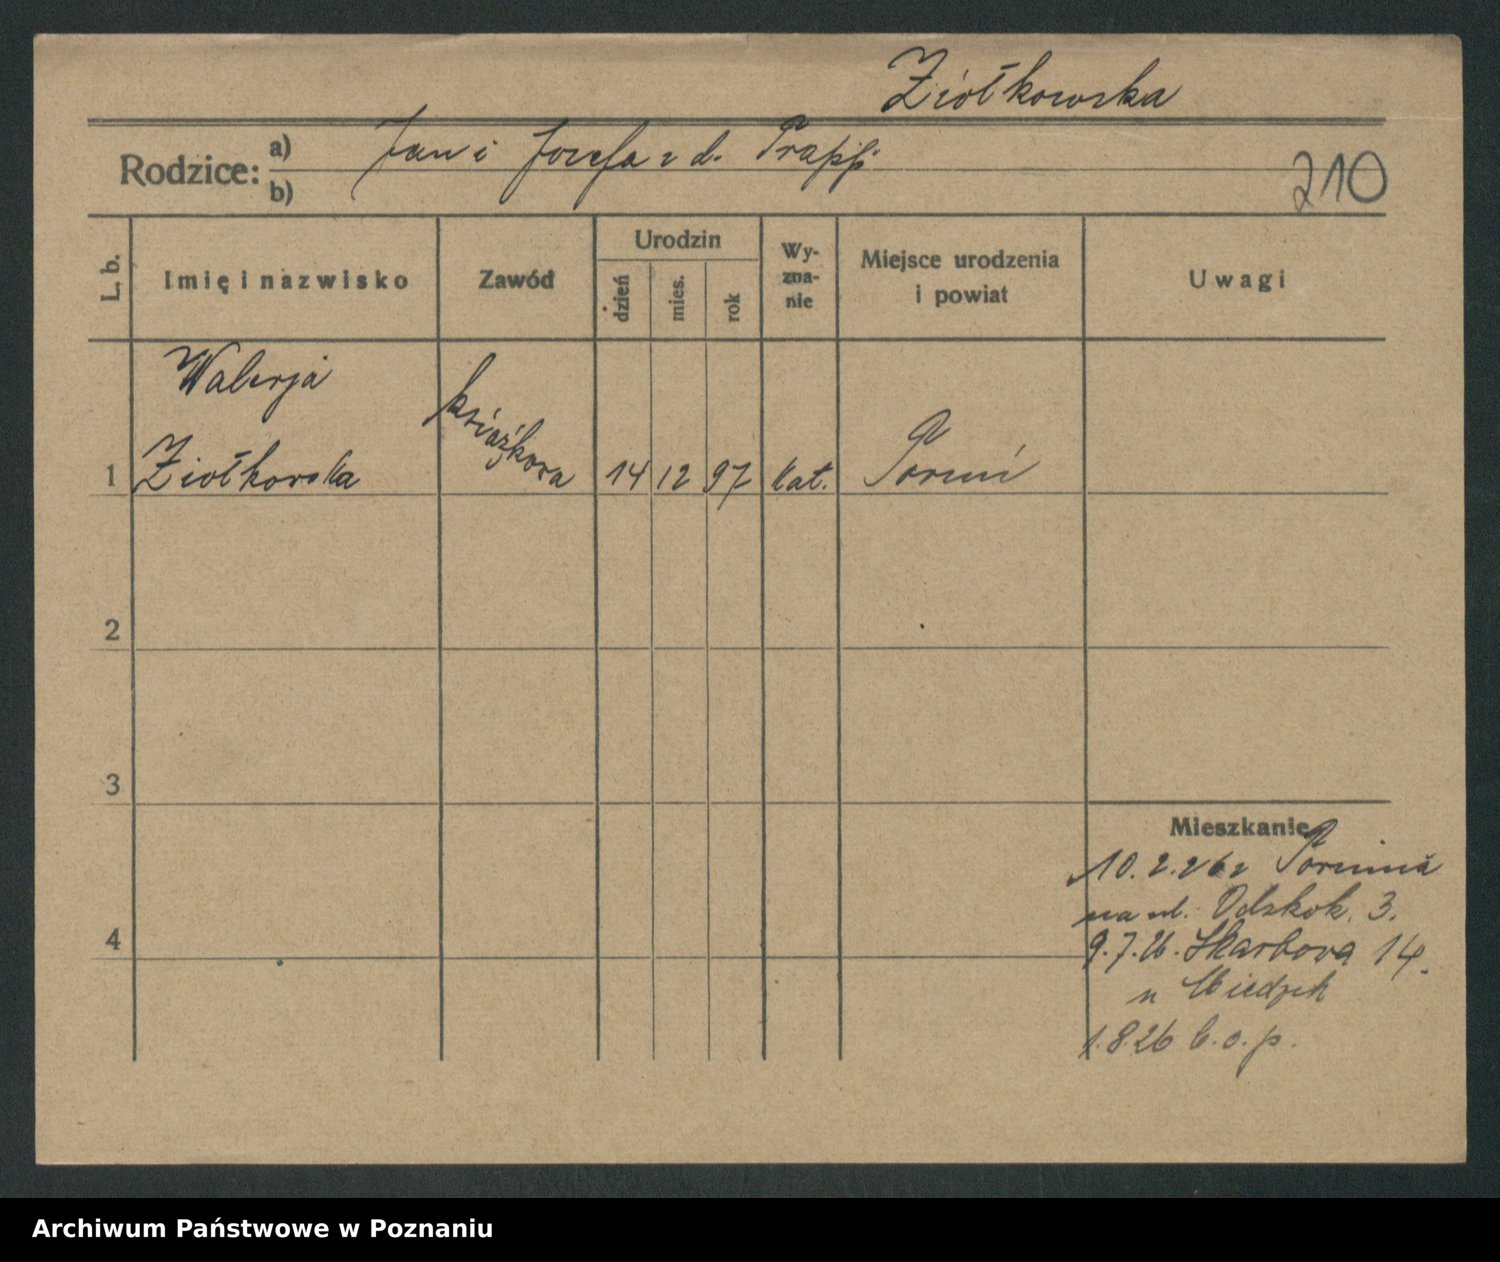 Ziółkowska
Rodzice: a) Jan i Józefa z d. Trapp
b)
210
L. b.
Imię i nazwisko
Zawód
Urodzin
dzień
mies.
rok
Wy-
zna-
nie
Miejsce urodzenia
i powiat
Uwagi
Walerja
1 Ziółkowska książkowa 14 12 97 kat. Toruń
2
3
4
Mieszkanie
10.2.26 z Torunia
na ul. Odskok. 3.
9.7.26. Skarbowa 14.
1.8.26 b.o.p.
Archiwum Państwowe w Poznaniu